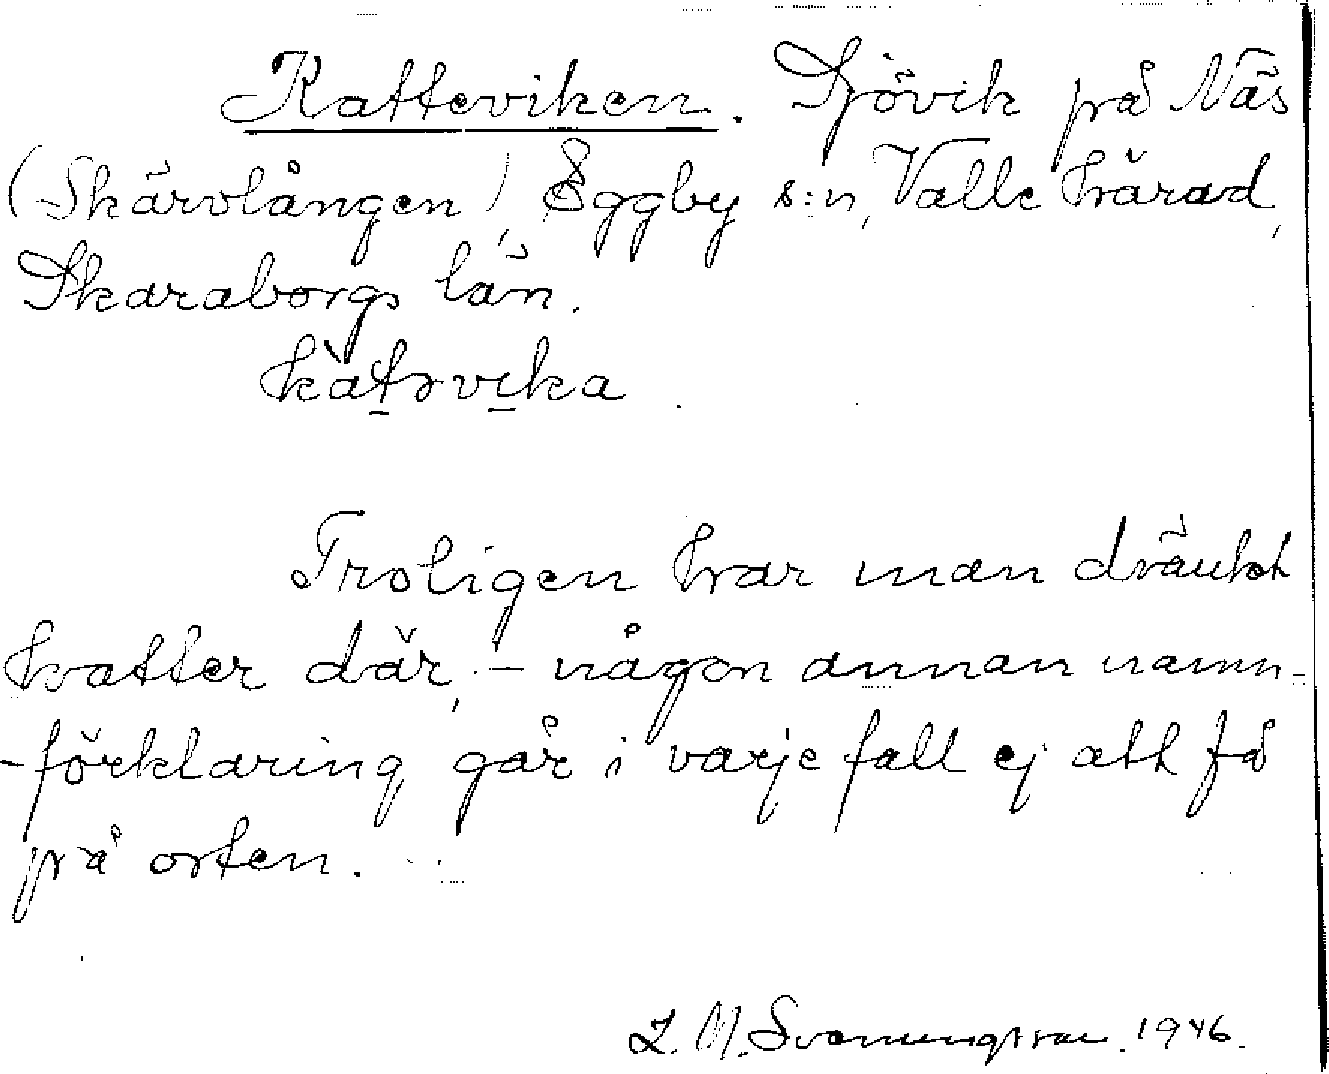 Katteviken. Sjövik på Näs
(Skärvlången), Eggby s:n, Valle härad,
Skaraborgs län.
Troligen har man dränkt
katter där, - någon annan namn-
-förklaring går i varje fall ej att få
på orten.
L. M. Svanungsson. 1946.